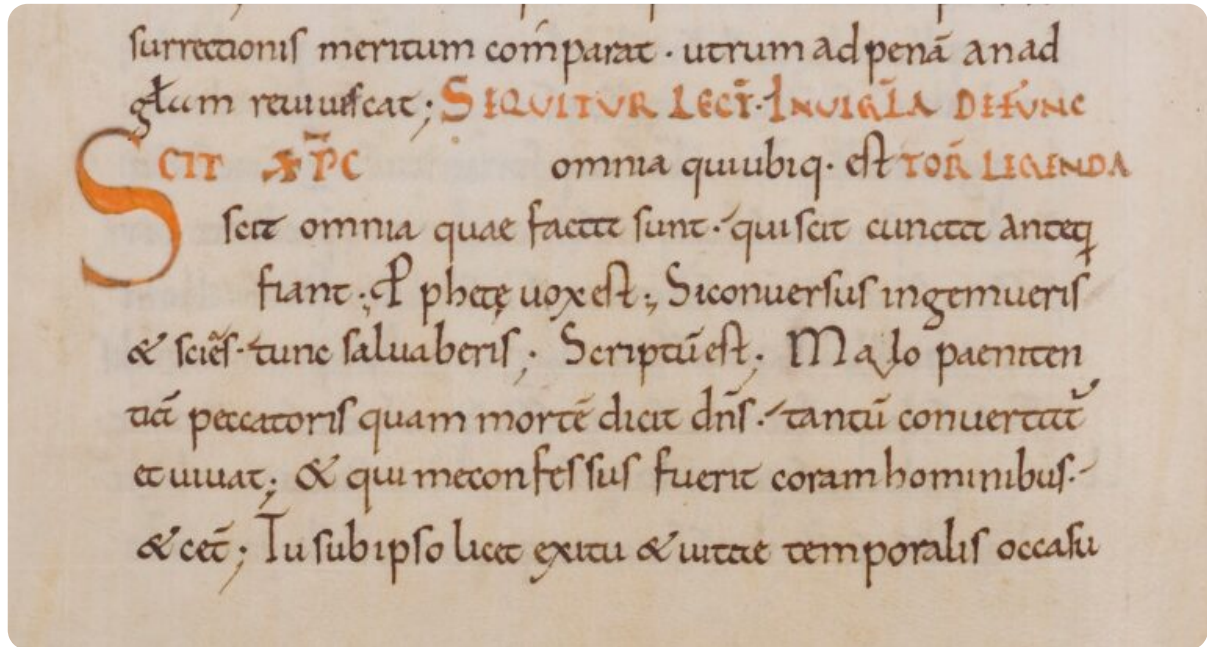 surrectionis meritum comparat · utrum ad penā an ad
głam reuiuiscat; SEQUITUR LECT̄· IN UIGIL̄A DEFUNC
SCIT XP̄C omnia qui ubiq· est TOR̄ LEGENDA
scit omnia quae facta sunt· qui scit cuncta anteq
fiant; Pphetę uox est; Si conuersus ingemueris
& sciēs· tunc saluaberis; Scriptū est; Malo paeniten
tiā peccatoris quam mortē dicit dn̄s· tantū conuertat̄
et uiuat; & qui me confessus fuerit coram hominibus·
& cet̄; Tu sub ipso licet exitu & uitae temporalis occasu